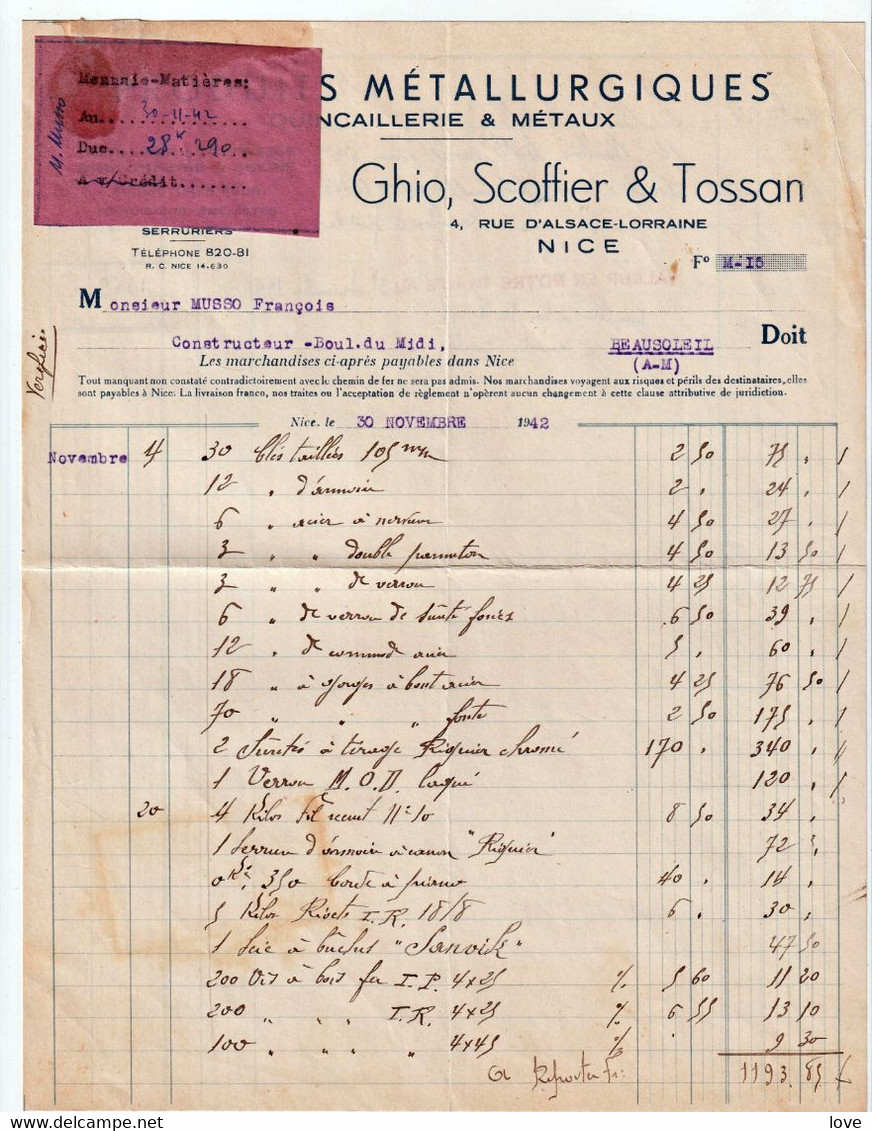 Monnaie-Matières:
An....30-11-42
Due....28ᵏ 290
A m/Crédit.......
M. Musso
S MÉTALLURGIQUES
NCAILLERIE & MÉTAUX
Ghio, Scoffier & Tossan
4, RUE D'ALSACE-LORRAINE
NICE
SERRURIERS
TÉLÉPHONE 820-81
R. C. NICE 14.630
Fº M-15
Monsieur MUSSO François
Constructeur -Boul.du Midi, BEAUSOLEIL Doit
(A-M)
Les marchandises ci-après payables dans Nice
Verifiée
Tout manquant non constaté contradictoirement avec le chemin de fer ne sera pas admis. Nos marchandises voyagent aux risques et périls des destinataires, elles
sont payables à Nice. La livraison franco, nos traites ou l'acceptation de règlement n'opèrent aucun changement à cette clause attributive de juridiction.
Nice, le 30 NOVEMBRE 1942
Novembre 4 30 Clés taillées 105 mm 2 50 75 "
12 " d'armoire 2 " 24 "
6 " acier à nervure 4 50 27 "
3 " " double panneton 4 50 13 50
3 " " de verrou 4 25 12 75
6 " de verrou de sûreté forées 6 50 39 "
12 " de commode acier 5 " 60 "
18 " à gorges à bout acier 4 25 76 50
70 " " " fonte 2 50 175 "
2 Sûretés à tirage Riquier chromé 170 " 340 "
1 Verrou M.O.D. laqué 120 "
20 4 Kilos Fil recuit nº 10 8 50 34 "
1 Serrure d'armoire à canon "Riquier" 72 "
0Kº 350 Corde à piano 40 " 14 "
5 Kilos Rivets T.R. 18/8 6 " 30 "
1 Scie à bûches "Sanvik" 47 50
200 Vis à bois fer T.P. 4x25 % 5 60 11 20
200 " " " T.R. 4x25 % 6 55 13 10
100 " " " " 4x45 % " 9 30
A Reporter Fr: 1193.85
love